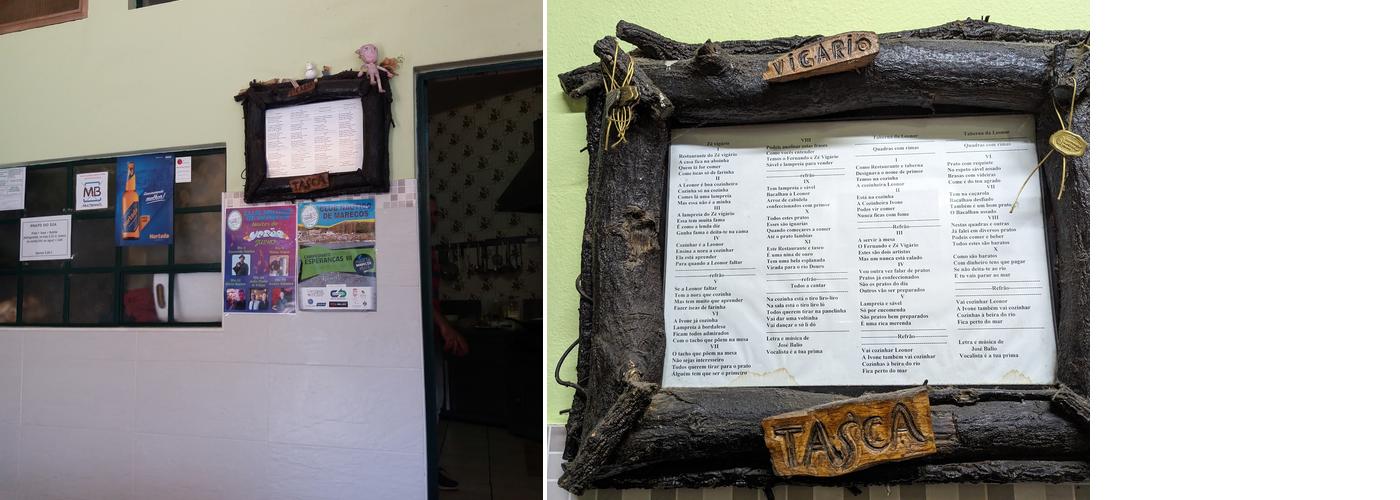 PRATO DO DIA
MB
CLUBE NÁUTICO
DE MARECOS
CAMPEONATO
ESPERANÇAS
TASCA
VIGÁRIO
Zé vigário
I
Restaurante do Zé vigário
A casa fica na aboinha
Quem lá for comer
Come iscas só de farinha
II
A Leonor é boa cozinheira
Cozinha só na cozinha
Comes lá uma lampreia
Mas essa não é a minha
III
A lampreia do Zé vigário
Essa tem muita fama
É como a lenda diz
Ganha fama é deita-te na cama
IV
Cozinhar é a Leonor
Ensina a nora a cozinhar
Ela está aprender
Para quando a Leonor faltar
refrão
V
Se a Leonor faltar
Tem a nora que cozinha
Mas tem muito que aprender
Fazer iscas de farinha
VI
A Ivone já cozinha
Lampreia à bordalesa
Ficam todos admirados
Com o tacho que põem na mesa
VII
O tacho que põem na mesa
Não sejas interesseiro
Todos querem tirar para o prato
Álguém tem que ser o primeiro
VIII
Podeis analisar estas frases
Como vocês entender
Temos o Fernando e Zé Vigário
Sável e lampreia para vender
refrão
IX
Tem lampreia e sável
Bacalhau à Leonor
Arroz de cabidela
confeccionados com primor
X
Todos estes pratos
Esses são iguarias
Quando começares a comer
Até o prato lambias
XI
Este Restaurante e tasco
É uma nina de ouro
Tem uma bela esplanada
Virada para o rio Douro
refrão
Todos a cantar
Na cozinha está o tiro liro-liro
Na sala está o tiro liro ló
Todos querem tirar na panelinha
Vai dar uma voltinha
Vai dançar o só li dó
Letra e música de
José Balio
Vocalista é a tua prima
Taberna da Leonor
Quadras com rimas
I
Como Restaurante e taberna
Designara o nome de primor
Temos na cozinha
A cozinheira Leonor
II
Está na cozinha
A Cozinheira Ivone
Podes vir comer
Nunca ficas com fome
Refrão
III
A servir à mesa
O Fernando e Zé Vigário
Estes são dois artistas
Mas um nunca está calado
IV
Vou outra vez falar de pratos
Pratos já confeccionados
São os pratos do dia
Outros vão ser preparados
V
Lampreia e sável
Só por encomenda
São pratos bem preparados
É uma rica merenda
Refrão
Vai cozinhar Leonor
A Ivone também vai cozinhar
Cozinhas à beira do rio
Fica perto do mar
Taberna da Leonor
Quadras com rimas
VI
Prato com requinte
No espeto sável assado
Brasas com videiras
Come e do teu agrado
VII
Tem na caçarola
Bacalhau desfiado
Também é um bom prato
O Bacalhau assado
VIII
Nestas quadras e outras
Já falei em diversos pratos
Podeis comer e beber
Todos estes são baratos
X
Como são baratos
Com dinheiro tens que pagar
Se não deita-te ao rio
E tu vais parar ao mar
Refrão
Vai cozinhar Leonor
A Ivone também vai cozinhar
Cozinhas à beira do rio
Fica perto do mar
Letra e música de
José Balio
Vocalista é a tua prima
TASCA